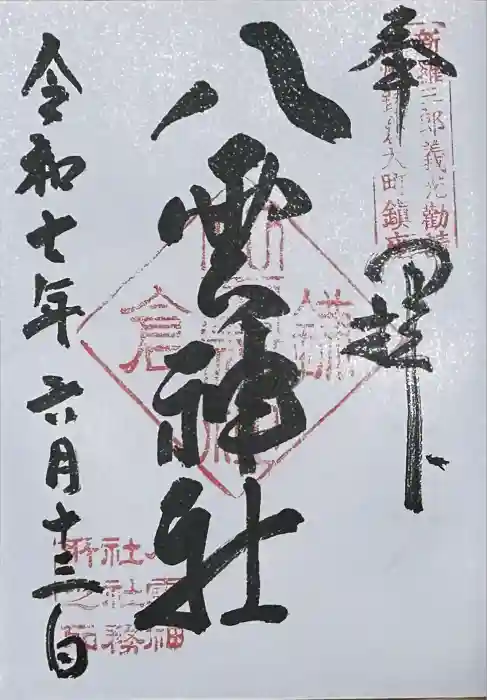 奉拝
新羅三郎義光勧請
大町鎮
八雲神社
鎌倉
令和七年六月十三日
八雲神
社社務
所之印